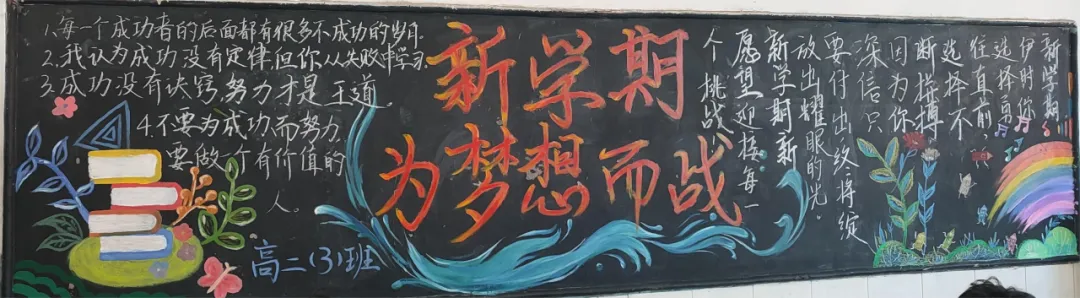 1、每一个成功者的后面都有很多不成功的岁月.
2.我认为成功没有定律但你从失败中学习.
3.成功没有诀窍努力才是王道。
4.不要为成功而努力
要做一个有价值的
人。
高二(3)班
新学期
为梦想而战
新学期
伊时你
选择勇
往直前,
选择不
断拼搏
因为你
深信只
要付出终将绽
放出耀眼的光。
新学期新
愿望迎接每一
个挑战